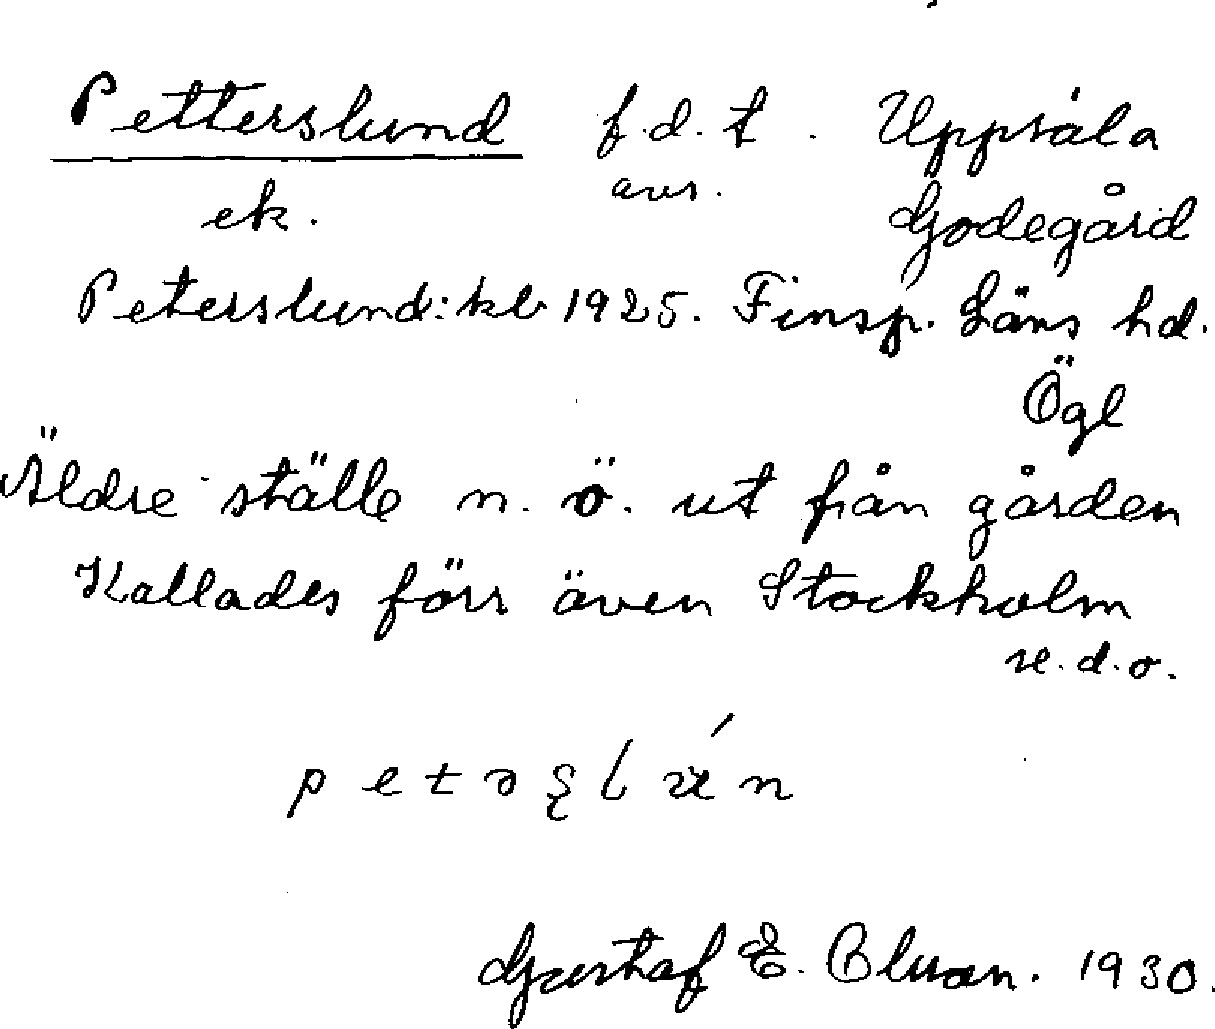 Petterslund f.d.t. Uppsala
ek. avs. Godegård
Peterslund: kb 1925. Finsp. Läns hd.
Ögl
Äldre ställe n. ö. ut från gården
Kallades förr även Stockholm
se. d. o.
Gustaf E. 1930.